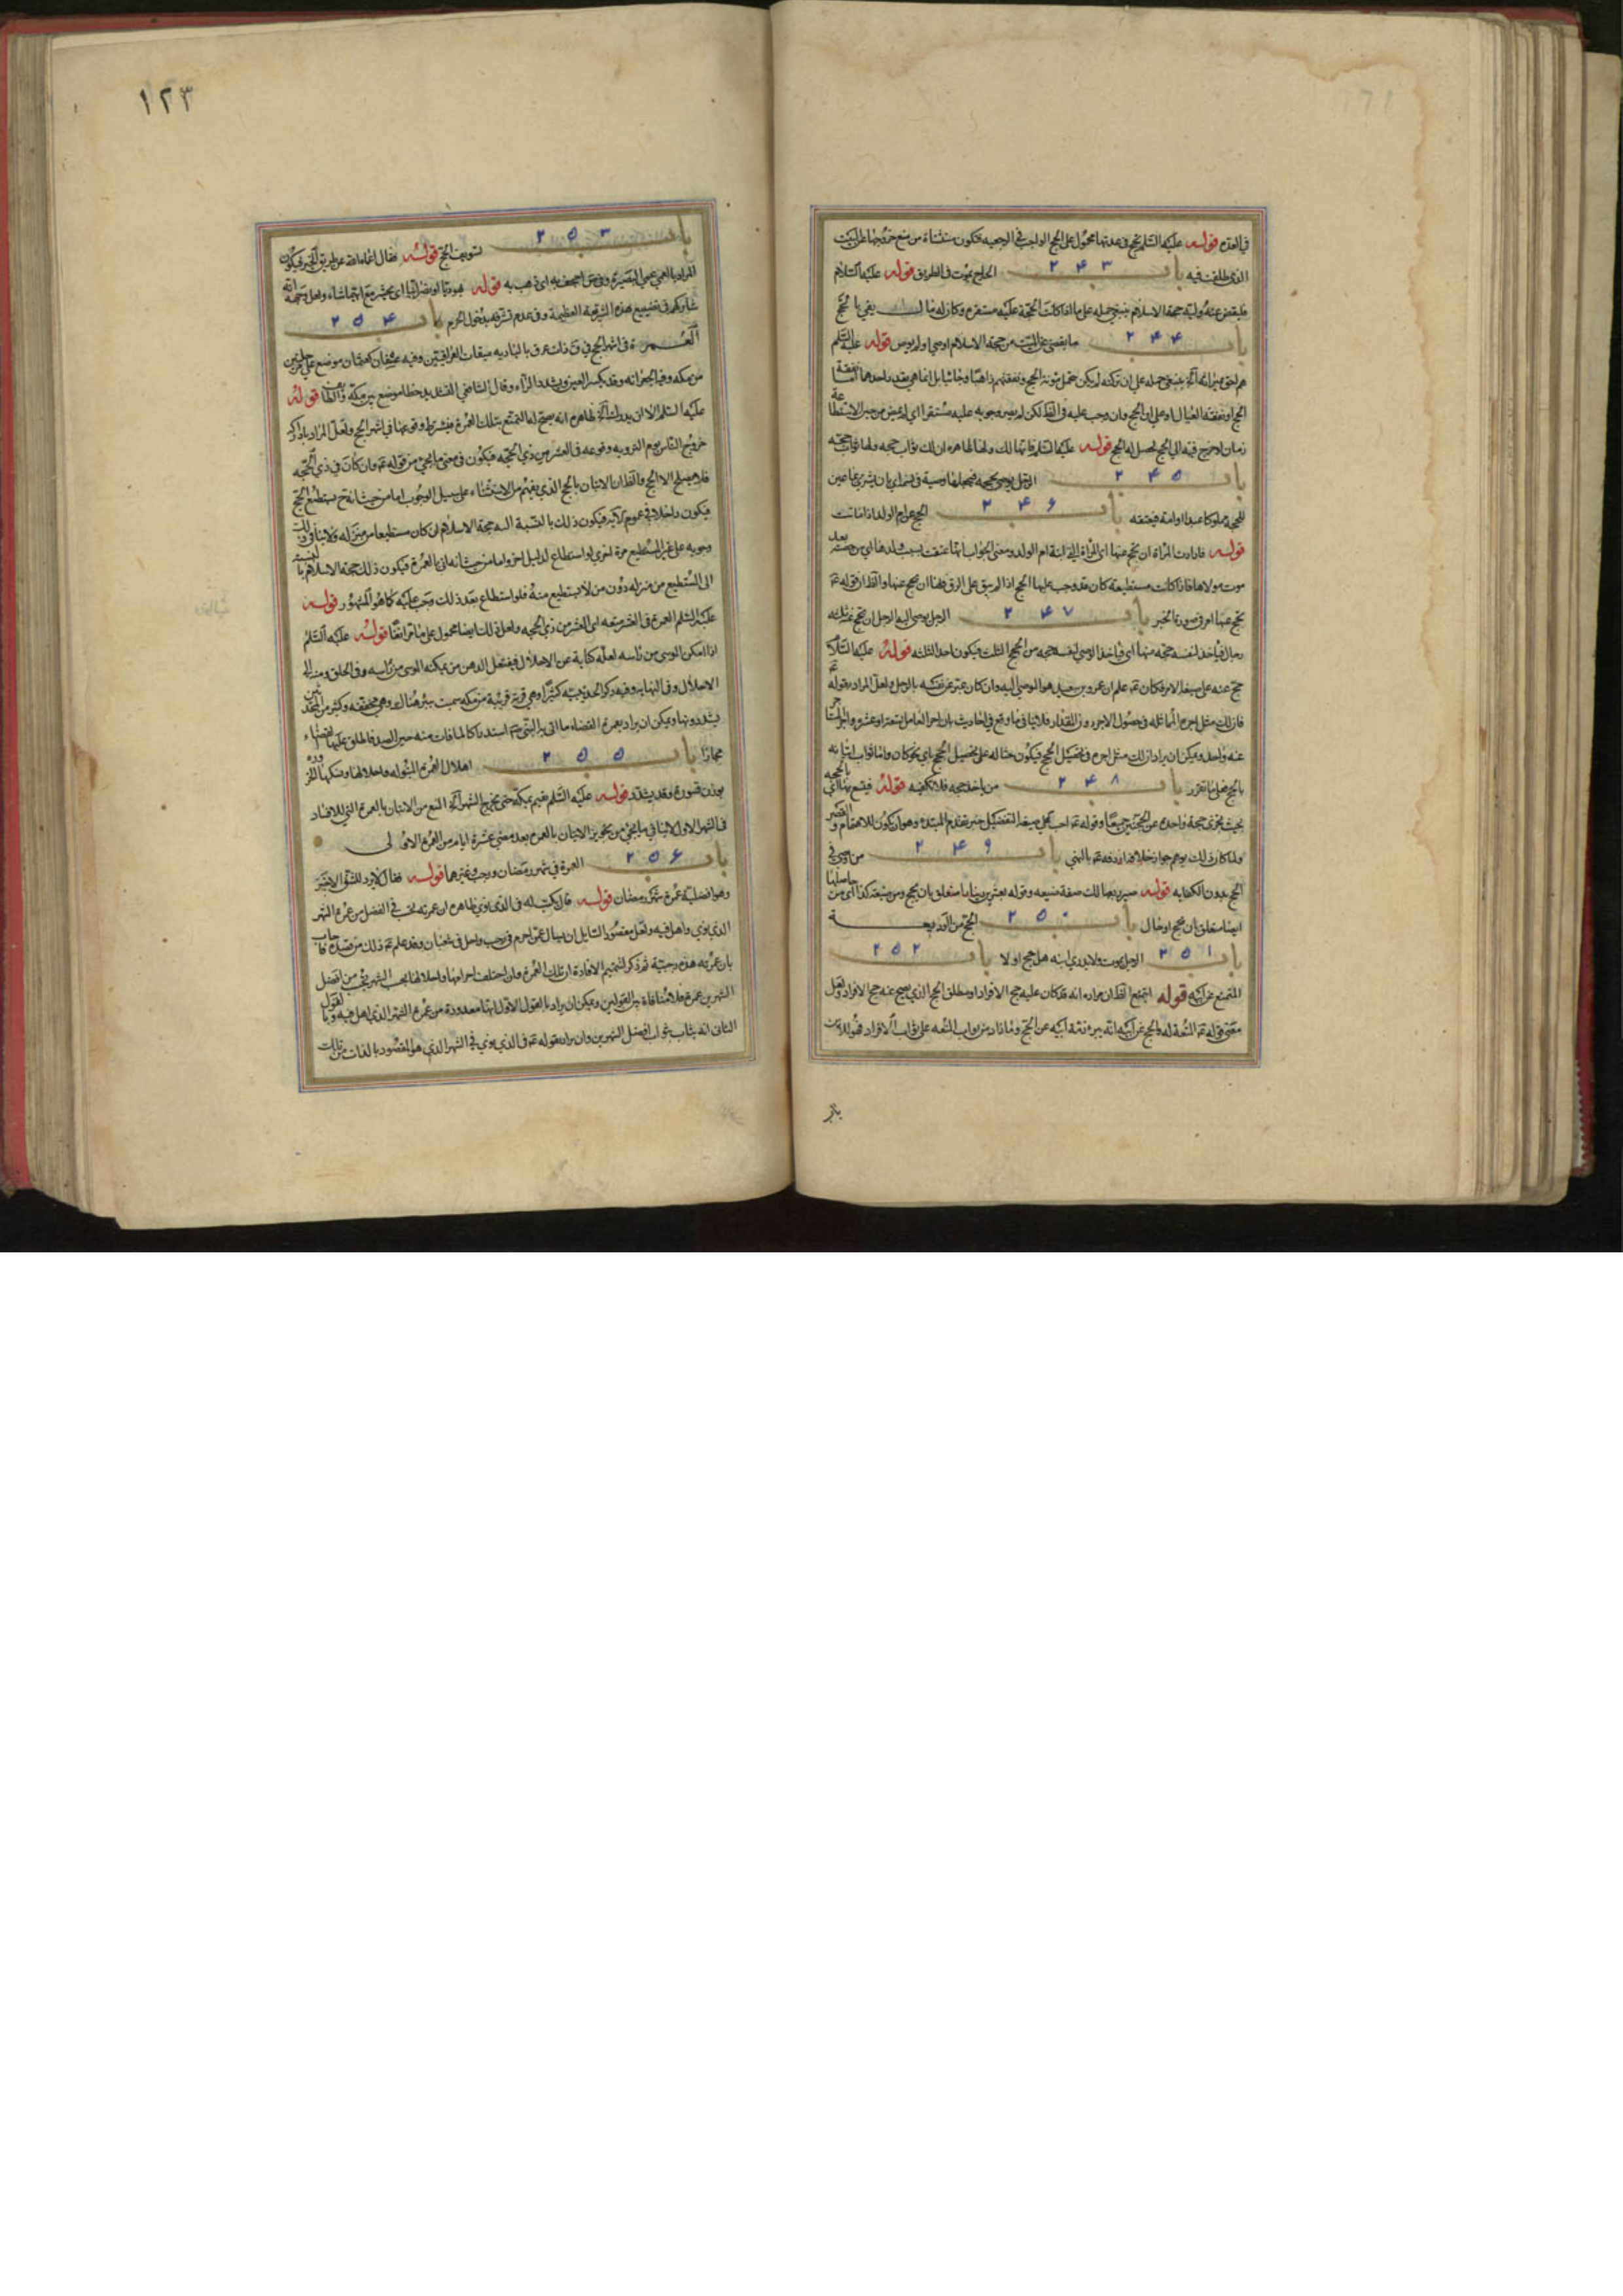 في العدة قوله عليه السلم تحج في عدتها محمول على الحج الواجب في الرجعيه فيكون مستثناة من منع خروجها عن البيت
الذي طلقت فيه باب ٢٤٣ الحاج يموت في الطريق قوله عليه السلام
فليقض عنه وليه حجة الاسلام ينبغي حمله على ما اذا كانت الحجة عليه مستقره وكان له مال يفي بالحج
باب ٢٤٤ ما يقضى عن الميت من حجة الاسلام اوصي او لم يوص قوله عليه السلم
هم احق بميراثه ينبغي حمله على ان تركته لم يكن تحمل مؤنة الحج ونفقتهم ذاهبا وجائيا بل انما هي بقدر احدهما اما نفقة
الحج او نفقة العيال او على ان الحج وان وجب عليه في الظ لكن لم يصر وجوبه عليه مستقرا اي لم يمض من حين الاستطاعة
زمان لو خرج فيه الي الحج لحصل له الحج قوله عليه السلم فانها لك ولها ظاهره ان لك ثواب حجه ولها ثواب حجه
باب ٢٤٥ الرجل يوصي بحجه فيجعلها وصيه في نسمه اي بان يشتري بما عين
للحجه مملوكا عبدا او امة فيعتقه باب ٢٤٦ الحج عن ام الولد اذا ماتت
قوله فارادت المرأة ان تحج عنها اي المراة التي ابنة ام الولد ومعنى الجواب انها عتقت بسبب ولدها اي من حصته بعد
موت مولاها فاذا كانت مستطيعة كان قد وجب عليها الحج اذا لم يبق على الرق فلها ان تحج عنها والظ ان قوله ع
تحج عنها امر في صورة الخبر باب ٢٤٧ الرجل يوصي اليه الرجل ان يحج عنه ثلثه
رجال فياخذ لنفسه حجه منها اي فياخذ الوصي لنفسه حجه من الحجج الثلث فيكون احد الثلثه قوله عليه السلام
حج عنه على صيغة الامر فكان ع علم ان عمرو بن سعيد هو الوصي اليه وان كان عبر عن نفسه بالرجل ولعل المراد بقوله ع
فان لك مثل اجره المماثله في حصول الاجر دون المقدار فلا ينافي ما وقع في احاديث بان اجر العامل تسعة او عشرة واجر الميت
عنه واحد ويمكن ان يراد ان لك مثل اجره في تحصيل الحج فيكون حثا له على تحصيل الحج باي نحو كان واما ثواب اتيانه
بالحج فعلى ما تقرر باب ٢٤٨ من ياخذ حجه فلا تكفيه قوله فيتسع بها اي بالحجه
بحيث يجزي حجة واحده عن الحجتين جميعا وقوله ع احب الي صيغة التفضيل خبر تقدم المبتدء وهو ان يكون للاهتمام والقصر
ولما كان ذلك يوهم جواز خلافه اردفه ع بالنهي باب ٢٤٩ من اوصى في
الحج بدون الكفايه قوله
ايضا متعلق بان يحج او بمال باب ٢٥٠ الحج من الوديعة
باب ٢٥١ الرجل يموت ولا يدري ابنه هل حج او لا باب ٢٥٢
المتمتع عن ابيه قوله ايتمتع الظ ان مراده انه قد كان عليه حج الافراد او مطلق الحج الذي يصح عنه حج الافراد ولعل
معنى قوله ع المتعة له والحج عن ابيه انه يبرء ذمة ابيه عن الحج وما زاد من ثواب المتعه على ثواب الافراد فهو للابن
١٢٣
باب ٢٥٣ تسويف الحج قوله فقال اعماه الله عن طريق الخير فيكون
المراد بالعمي عمي البصيرة وفي ص اجحف به اي ذهب به قوله يهوديا او نصرانيا اي يحشر مع ايهما شاء ولعل وجهه انه
شاركهم في تضييع هذه الشريعة العظيمة وفي عدم تشرفه بدخول الحرم باب ٢٥٤
العمرة في اشهر الحج في ق ذات عرق بالباديه ميقات العراقيين وفيه عسفان كعثمان موضع على مرحلتين
من مكه وفيه الجعرانه وقد يكسر العين ويشدد الراء وقال الشافعي التشديد خطا موضع بين مكة والطائف قوله
عليه السلم الا ان يدرك ظاهره انه يصح لها التمتع بتلك العمرة فيشترط وقوعها في اشهر الحج ولعل المراد بادراك
خروج الناس يوم الترويه وقوعه في العشر من ذي الحجه فيكون في معنى ما يجئ من قوله ع وان كان في ذي الحجه
فلا يصلح الا الحج والظ ان الاتيان بالحج الذي يفهم من الاستثناء على سبيل الوجوب اما من حيث انه ح يستطيع الحج
فيكون داخلا في عموم الآيه فيكون ذلك بالنسبة اليه حجة الاسلام ان كان مستطيعا من منزله ولا ينافي ذلك
وجوبه على غير المستطيع مرة اخرى لو استطاع لدليل اخر واما من حيث انه اتى بالعمرة فيكون ذلك حجة الاسلام بالنسبة
الى المستطيع من منزله دون من لا يستطيع منه فلو استطاع بعد ذلك وجب عليه كما هو المشهور قوله
عليه السلم العمرة في العشر متعه اى العشر من ذي الحجه ولعل ذلك ايضا محمول على ما مر انفا قوله عليه السلم
اذا امكن الموسى من راسه لعله كناية عن الاحلال فيفتعل الدهن من يمكنه الموسى من راسه وفي الحلق ومنه الى
الاحلال وفي النهايه وفيه ذكر الحديبيه كثيرا وهي قرية قريبة من مكه سميت ببئر هناك وهي مخففه وكثير من المحدثين
يشددونها ويمكن ان يراد بعمرة القضاء ما اتى به النبي ص استدراكا لما فات منه حين الصد فاطلق عليها القضاء
مجازا باب ٢٥٥ اهلال العمرة المبتوله واحلالها ونسكها
بوزن قسورة وقد يشدد قوله عليه السلم مقيم بمكة حتى يخرج الشهر المنع من الاتيان بالعمرة التي للافراد
في الشهر الاول لا ينافي ما يجئ من تجويز الاتيان بالعمره بعد مضي عشرة ايام من العمرة الاولى
باب ٢٥٦ العمرة في شهر رمضان ورجب وغيرهما قوله فقال لا يرد للشق الاخير
وهو افضلية عمرة شهر رمضان قوله قال يكتب له في الذي نوى ظاهره ان عمرته تحسب في الفضل من عمرة الشهر
الذي نوي واهل فيه ولعل مقصود السايل ان يسال عمن احرم في رجب واحل في شعبان وقد علم ع ذلك من قصده فاجاب
بان عمرته هذه رجبية ثم ذكر لتتميم الافادة ان تلك العمرة وان اختلف احرامها واحلالها بحسب الشهر يحسب من افضل
الشهرين عمرة فلا منافاة بين القولين ويمكن ان يراد بالقول الاول انها معدودة من عمرة الشهر الذي اهل فيه وبالقول
الثاني انه يثاب ثواب افضل الشهرين وان يراد بقوله ع في الذي نوي في الشهر الذي هو المقصود بالذات من تلك